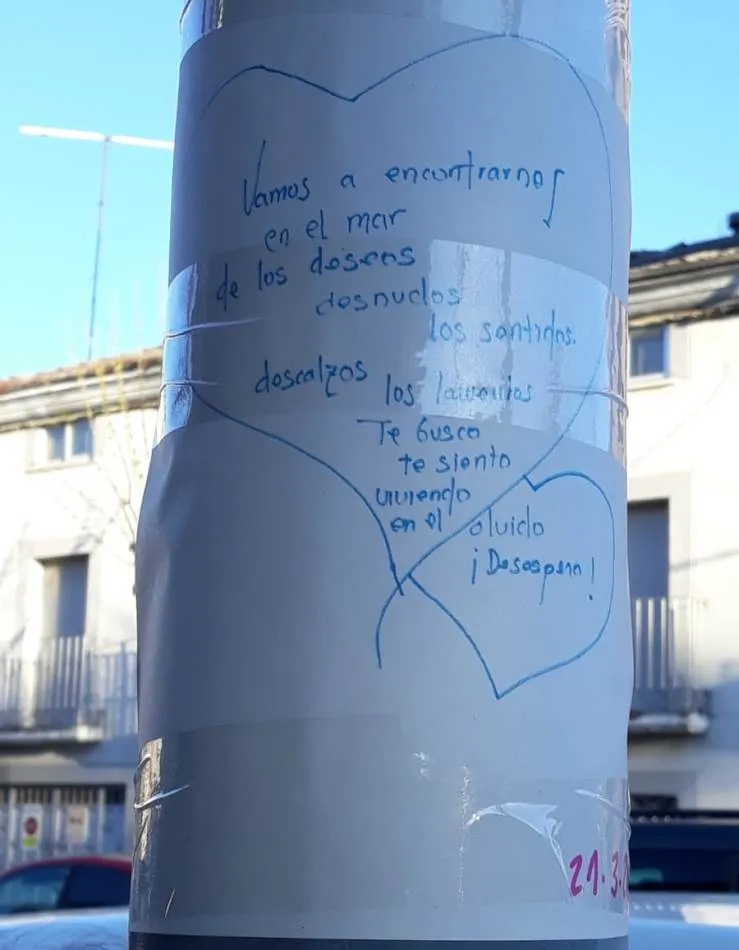 Vamos a encontrarnos
en el mar
de los deseos
desnudos
los sentidos.
descalzos los
Te busco
te siento
viviendo
en el olvido
¡Desespera!
21.3.